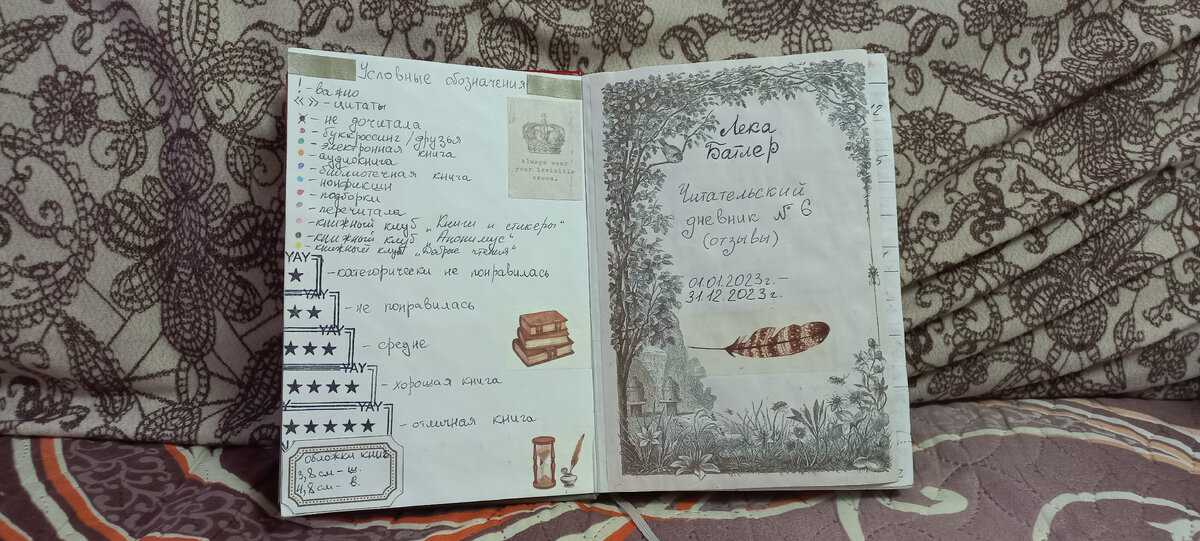 Условные обозначения
! - важно
« » - цитаты
- не дочитала
- буккроссинг / друзья
- электронная книга
- аудиокнига
- библиотечная книга
- нонфикшн
- подборки
- перечитала
- книжный клуб „Книги и стикеры“
- книжный клуб „Анонимус“
- книжный клуб „Добрые чтения“
YAY
★ - категорически не понравилась
YAY
★★ - не понравилась
YAY
★★★ - средне
YAY
★★★★ - хорошая книга
YAY
★★★★★ - отличная книга
обложки книг
3,8 см - ш.
4,8 см - в.
always wear
your invisible
crown.
Лека
Батлер
Читательский
дневник № 6
(отзывы)
01.01.2023г. -
31.12.2023г.